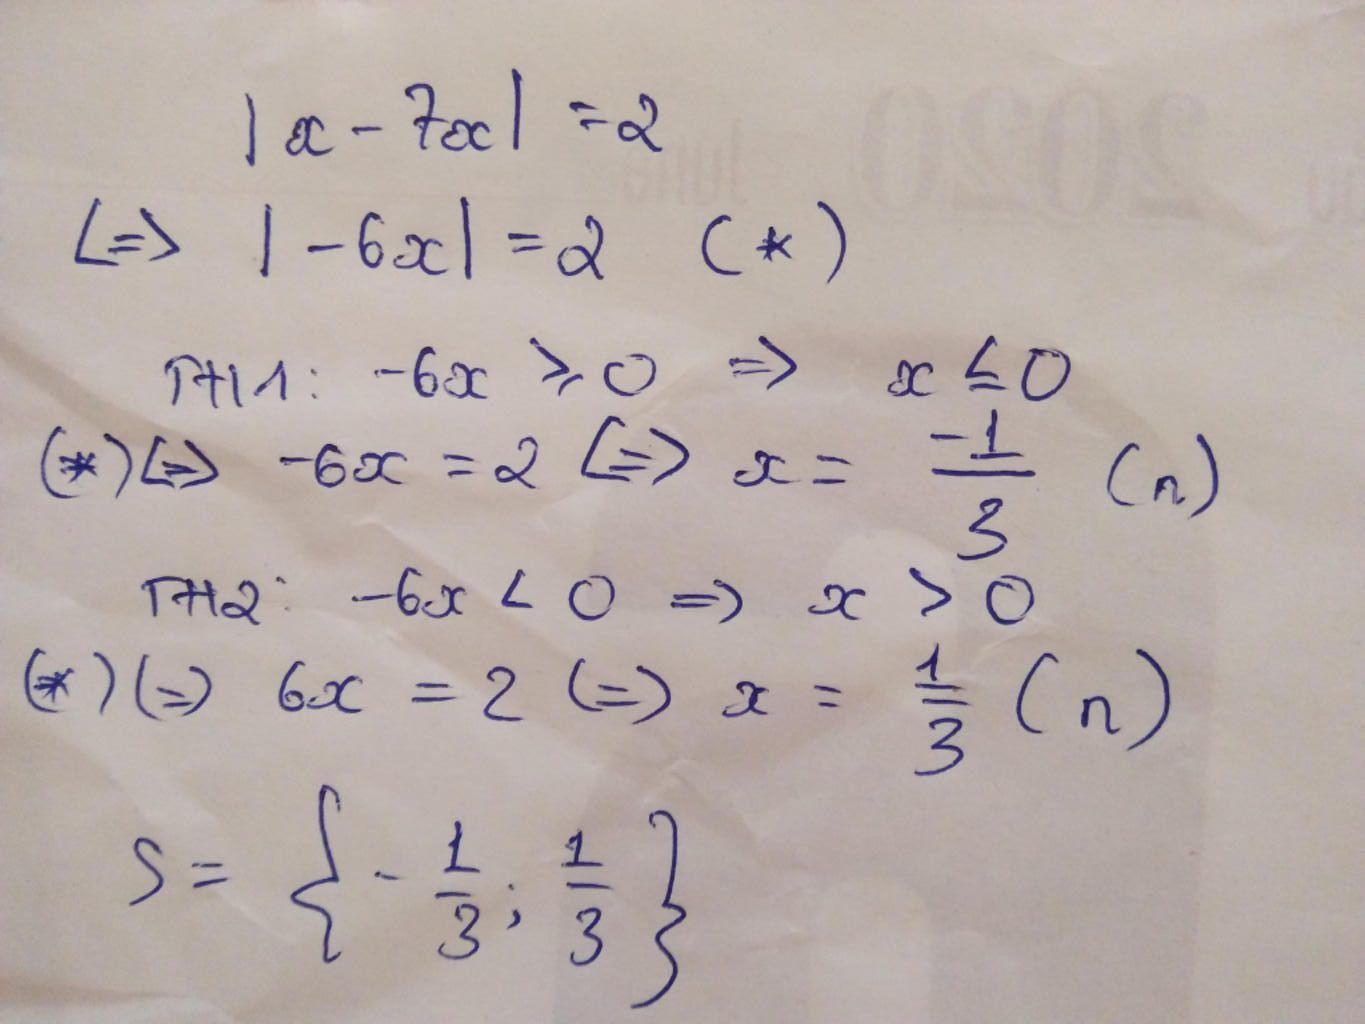 |x - 7x| = 2
<=> |-6x| = 2 (*)
TH1: -6x ⩾ 0 => x ≤ 0
(*) <=> -6x = 2 <=> x = -1/3 (n)
TH2: -6x < 0 => x > 0
(*) <=> 6x = 2 <=> x = 1/3 (n)
S = {-1/3; 1/3}